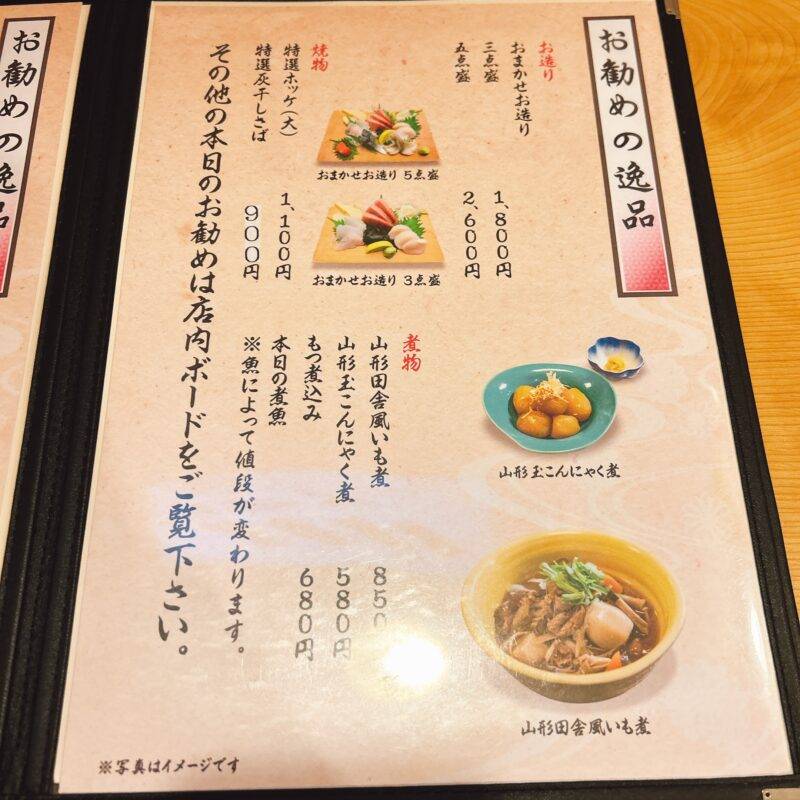 お勧めの逸品
お造り
おまかせお造り
三点盛 1,800円
五点盛 2,600円
おまかせお造り 5点盛
おまかせお造り 3点盛
焼物
特選ホッケ(大) 1,100円
特選灰干しさば 900円
煮物
山形田舎風いも煮 850
山形玉こんにゃく煮 580円
もつ煮込み 680円
本日の煮魚
※魚によって値段が変わります。
その他の本日のお勧めは店内ボードをご覧下さい。
山形玉こんにゃく煮
山形田舎風いも煮
※写真はイメージです
お勧めの逸品